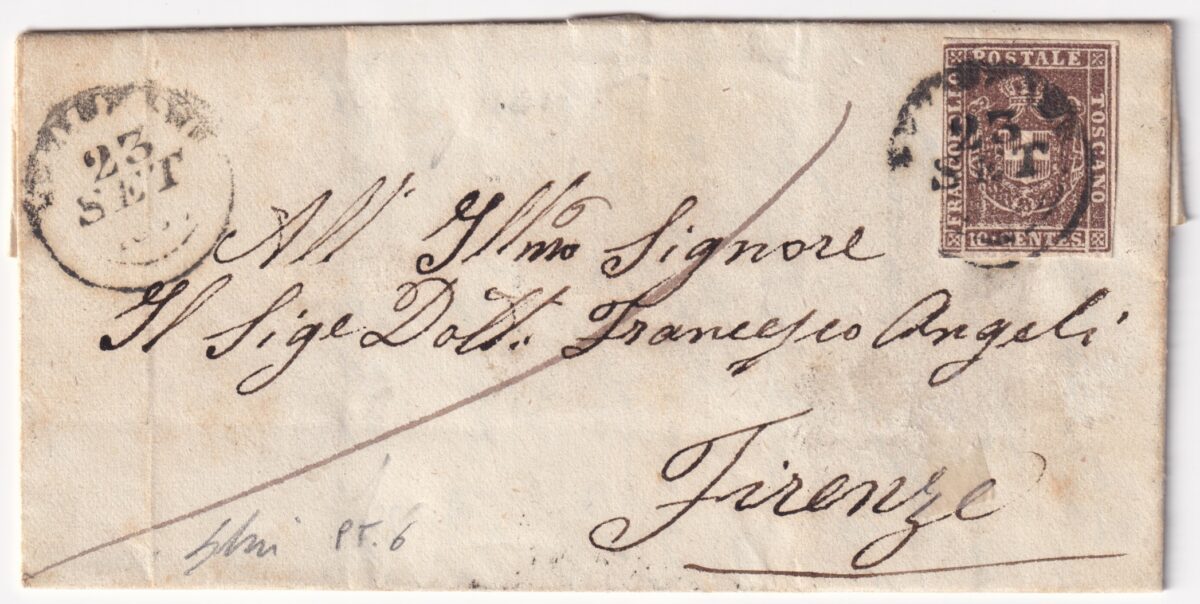 FRANCOBOLLO POSTALE TOSCANO
10 CENTES
23
SET
23
SET
All' Illmo Signore
Il Sigr Dott. Francesco Angeli
Firenze
PT. 6